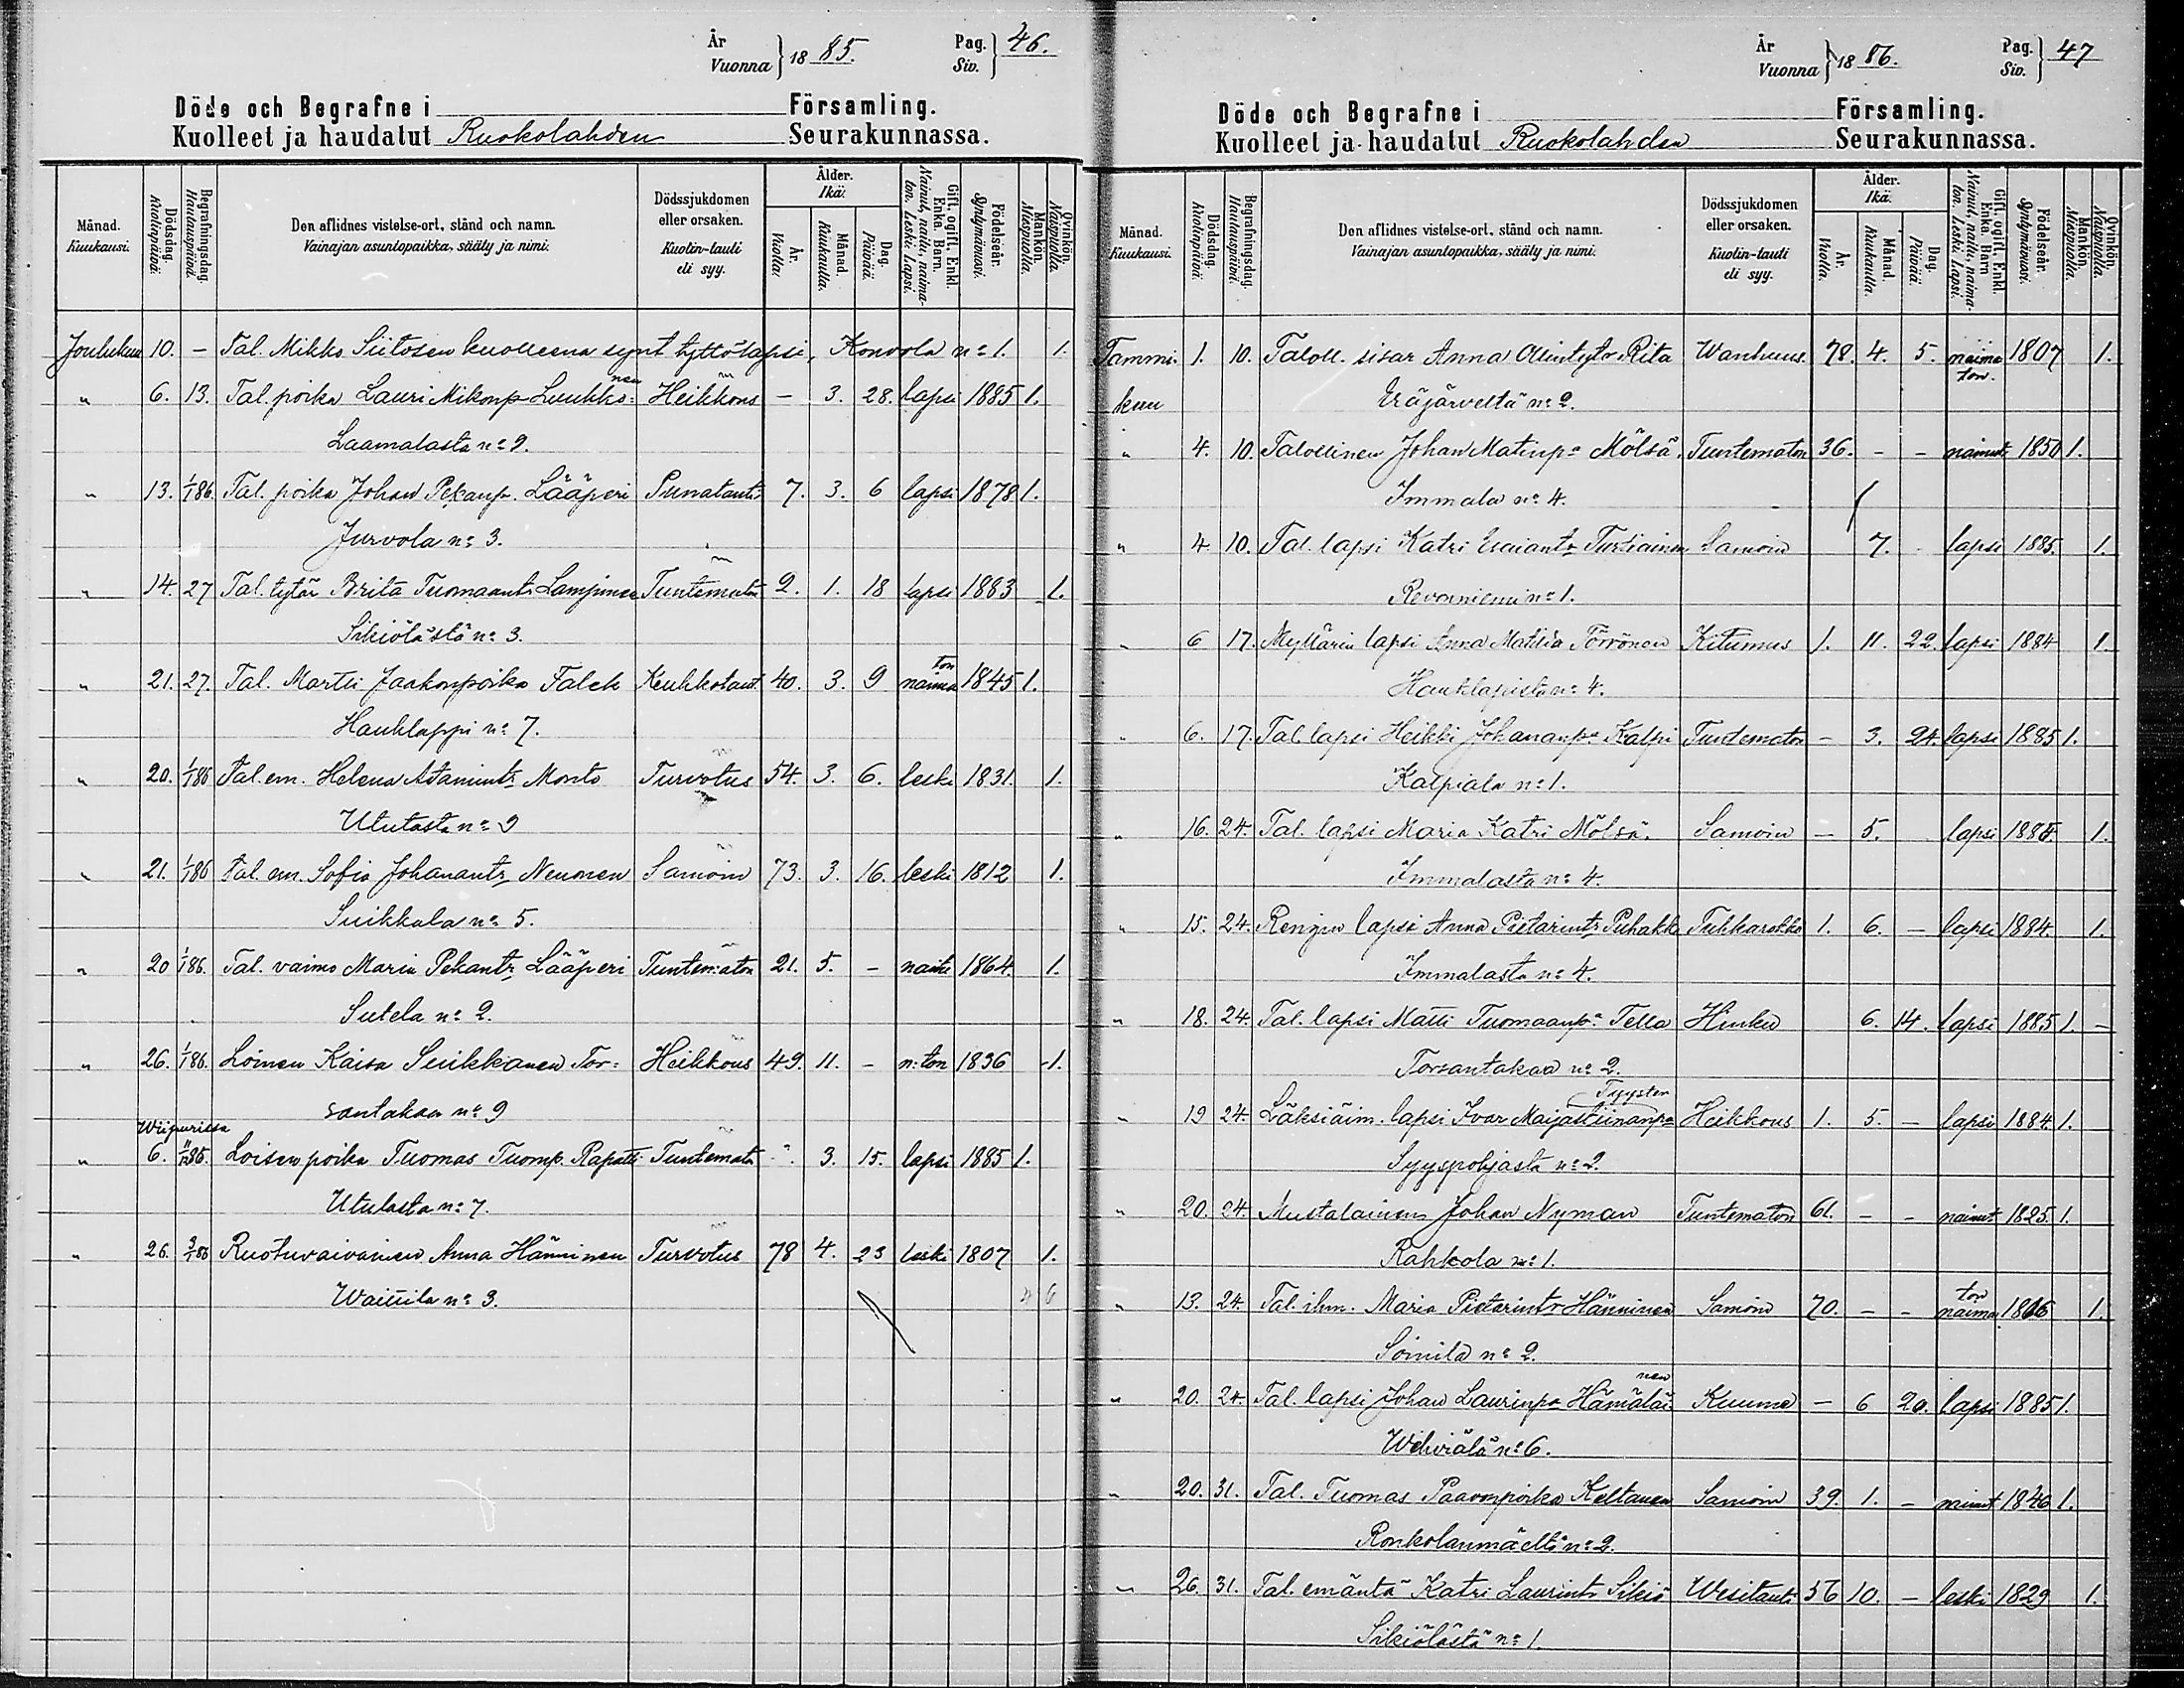 År
Vuonna } 1885.
Pag.
Siv. } 46.
Döde och Begrafne i Församling.
Kuolleet ja haudatut Ruokolahden Seurakunnassa.
Månad. Kuukausi.
Dödsdag. Kuolinpäivä.
Begrafningsdag. Hautauspäivä.
Den aflidnes vistelse-ort, stånd och namn.
Vainajan asuntopaikka, sääty ja nimi.
Dödssjukdomen eller orsaken.
Kuolin-tauti eli syy.
Ålder. Ikä.
År. Vuotta.
Månad. Kuukautta.
Dag. Päivää.
Gift, ogift, Enkl. Enka. Barn.
Nainut, naitu, naimaton. Leski. Lapsi.
Födelseår. Syntymävuosi.
Mankön. Miespuolia.
Qvinkön. Naispuolia.
Joulukuu 10. - Tal. Mikko Siitosen kuolleena synt tyttölapsi, Konvola n:o 1. 1.
" 6. 13. Tal. poika Lauri Mikonp Luukko=nen Heikkous - 3. 28. lapsi 1885 1.
Laamalasta n:o 9.
" 13. 1/1 86. Tal. poika Johan Pekanp. Lääperi Punatauti 7. 3. 6 lapsi 1878 1.
Jurvola n:o 3.
" 14. 27 Tal. tytär Brita Tuomaantr Lampinen Tuntematon 2. 1. 18 lapsi 1883 1.
Sikiölästä n:o 3.
" 21. 27. Tal. Martti Jaakonpoika Falck Keuhkotaut. 40. 3. 9 naimaton 1845 1.
Hauklappi n:o 7.
" 20. 1/1 86 Tal. em. Helena Adamintr Monto Turvotus 54. 3. 6. leski 1831. 1.
Utulasta n:o 9
" 21. 1/1 86 Tal. em. Sofia Johanantr Neuonen Samoin 73. 3. 16. leski 1812 1.
Suikkala n:o 5.
" 20 1/1 86. Tal. vaimo Maria Pekantr Lääperi Tuntematon 21. 5. - naitu 1864. 1.
Sutela n:o 2.
" 26. 1/1 86. Loinen Kaisa Suikkanen Tor= Heikkous 49. 11. - n:ton 1836 1.
santakaa n:o 9
Wiipurissa
" 6. 85. Loisen poika Tuomas Tuomp. Rapatti Tuntematon - 3. 15. lapsi 1885 1.
Utulasta n:o 7.
" 26. 3/1 86 Ruotuvaivainen Anna Hänninen Turvotus 78 4. 23 leski 1807 1.
Waittila n:o 3. 4 6
År
Vuonna } 1886.
Pag.
Siv. } 47
Döde och Begrafne i Församling.
Kuolleet ja haudatut Ruokolahden Seurakunnassa.
Månad. Kuukausi.
Dödsdag. Kuolinpäivä.
Begrafningsdag. Hautauspäivä.
Den aflidnes vistelse-ort, stånd och namn.
Vainajan asuntopaikka, sääty ja nimi.
Dödssjukdomen eller orsaken.
Kuolin-tauti eli syy.
Ålder. Ikä.
År. Vuotta.
Månad. Kuukautta.
Dag. Päivää.
Gift, ogift, Enkl. Enka. Barn.
Nainut, naitu, naimaton. Leski. Lapsi.
Födelseår. Syntymävuosi.
Mankön. Miespuolia.
Qvinkön. Naispuolia.
Tammi. 1. 10. Taloll. sisar Anna Rita Wanhuus. 78. 4. 5. naimaton. 1807 1.
kuu Eräjärveltä n:o 2.
" 4. 10. Talollinen Johan Matinp:a Mölsä. Tuntematon 36. - - nainut 1850 1.
Immala n:o 4.
" 4 10. Tal. lapsi Katri Esaiantr Turtiainen Samoin 7. lapsi 1885. 1.
Revonniemi n:o 1.
" 6 17. Myllärin lapsi Anna Matilda Törrönen Kitumus 1. 11. 22. lapsi 1884 1.
Hauklapista n:o 4.
" 6. 17. Tal. lapsi Heikki Johananp:a Kalpi Tuntematon - 3. 24. lapsi 1885 1.
Kalpiala n:o 1.
" 16. 24. Tal. lapsi Maria Katri Mölsä. Samoin - 5. lapsi 1885. 1.
Immalasta n:o 4.
" 15. 24. Rengin lapsi Anna Pietarintr Puhakk Tuhkarokko 1. 6. - lapsi 1884. 1.
Immalasta n:o 4.
" 18. 24. Tal. lapsi Matti Tuomaanp:a Tella Hinku 6. 14. lapsi 1885 1. -
Torsantakaa n:o 2.
Tyyster
" 19 24. Läksiäim. lapsi Ivar Maijastiinanp:a Heikkous 1. 5. - lapsi 1884. 1.
Syyspohjasta n:o 2.
" 20. 24. Mustalainen Johan Nyman Tuntematon 61. - - nainut 1825. 1.
Rahkola n:o 1.
" 13. 24. Tal. ihm. Maria Pietarintr Hänninen Samoin 70. - - naimaton 1816 1.
Soinila n:o 2.
" 20. 24. Tal. lapsi Johan Laurinp:a Hämäläinen Kuume - 6 20. lapsi 1885 1.
Wihviälä n:o 6.
" 20. 31. Tal. Tuomas Paavonpoika Keltanen Samoin 39. 1. - nainut 1846 1.
Ronkolanmäeltä n:o 2.
" 26. 31. Tal. emäntä Katri Laurintr Sikiö Wesitauti 56 10. - leski 1829 1.
Sikiölästä n:o 1.